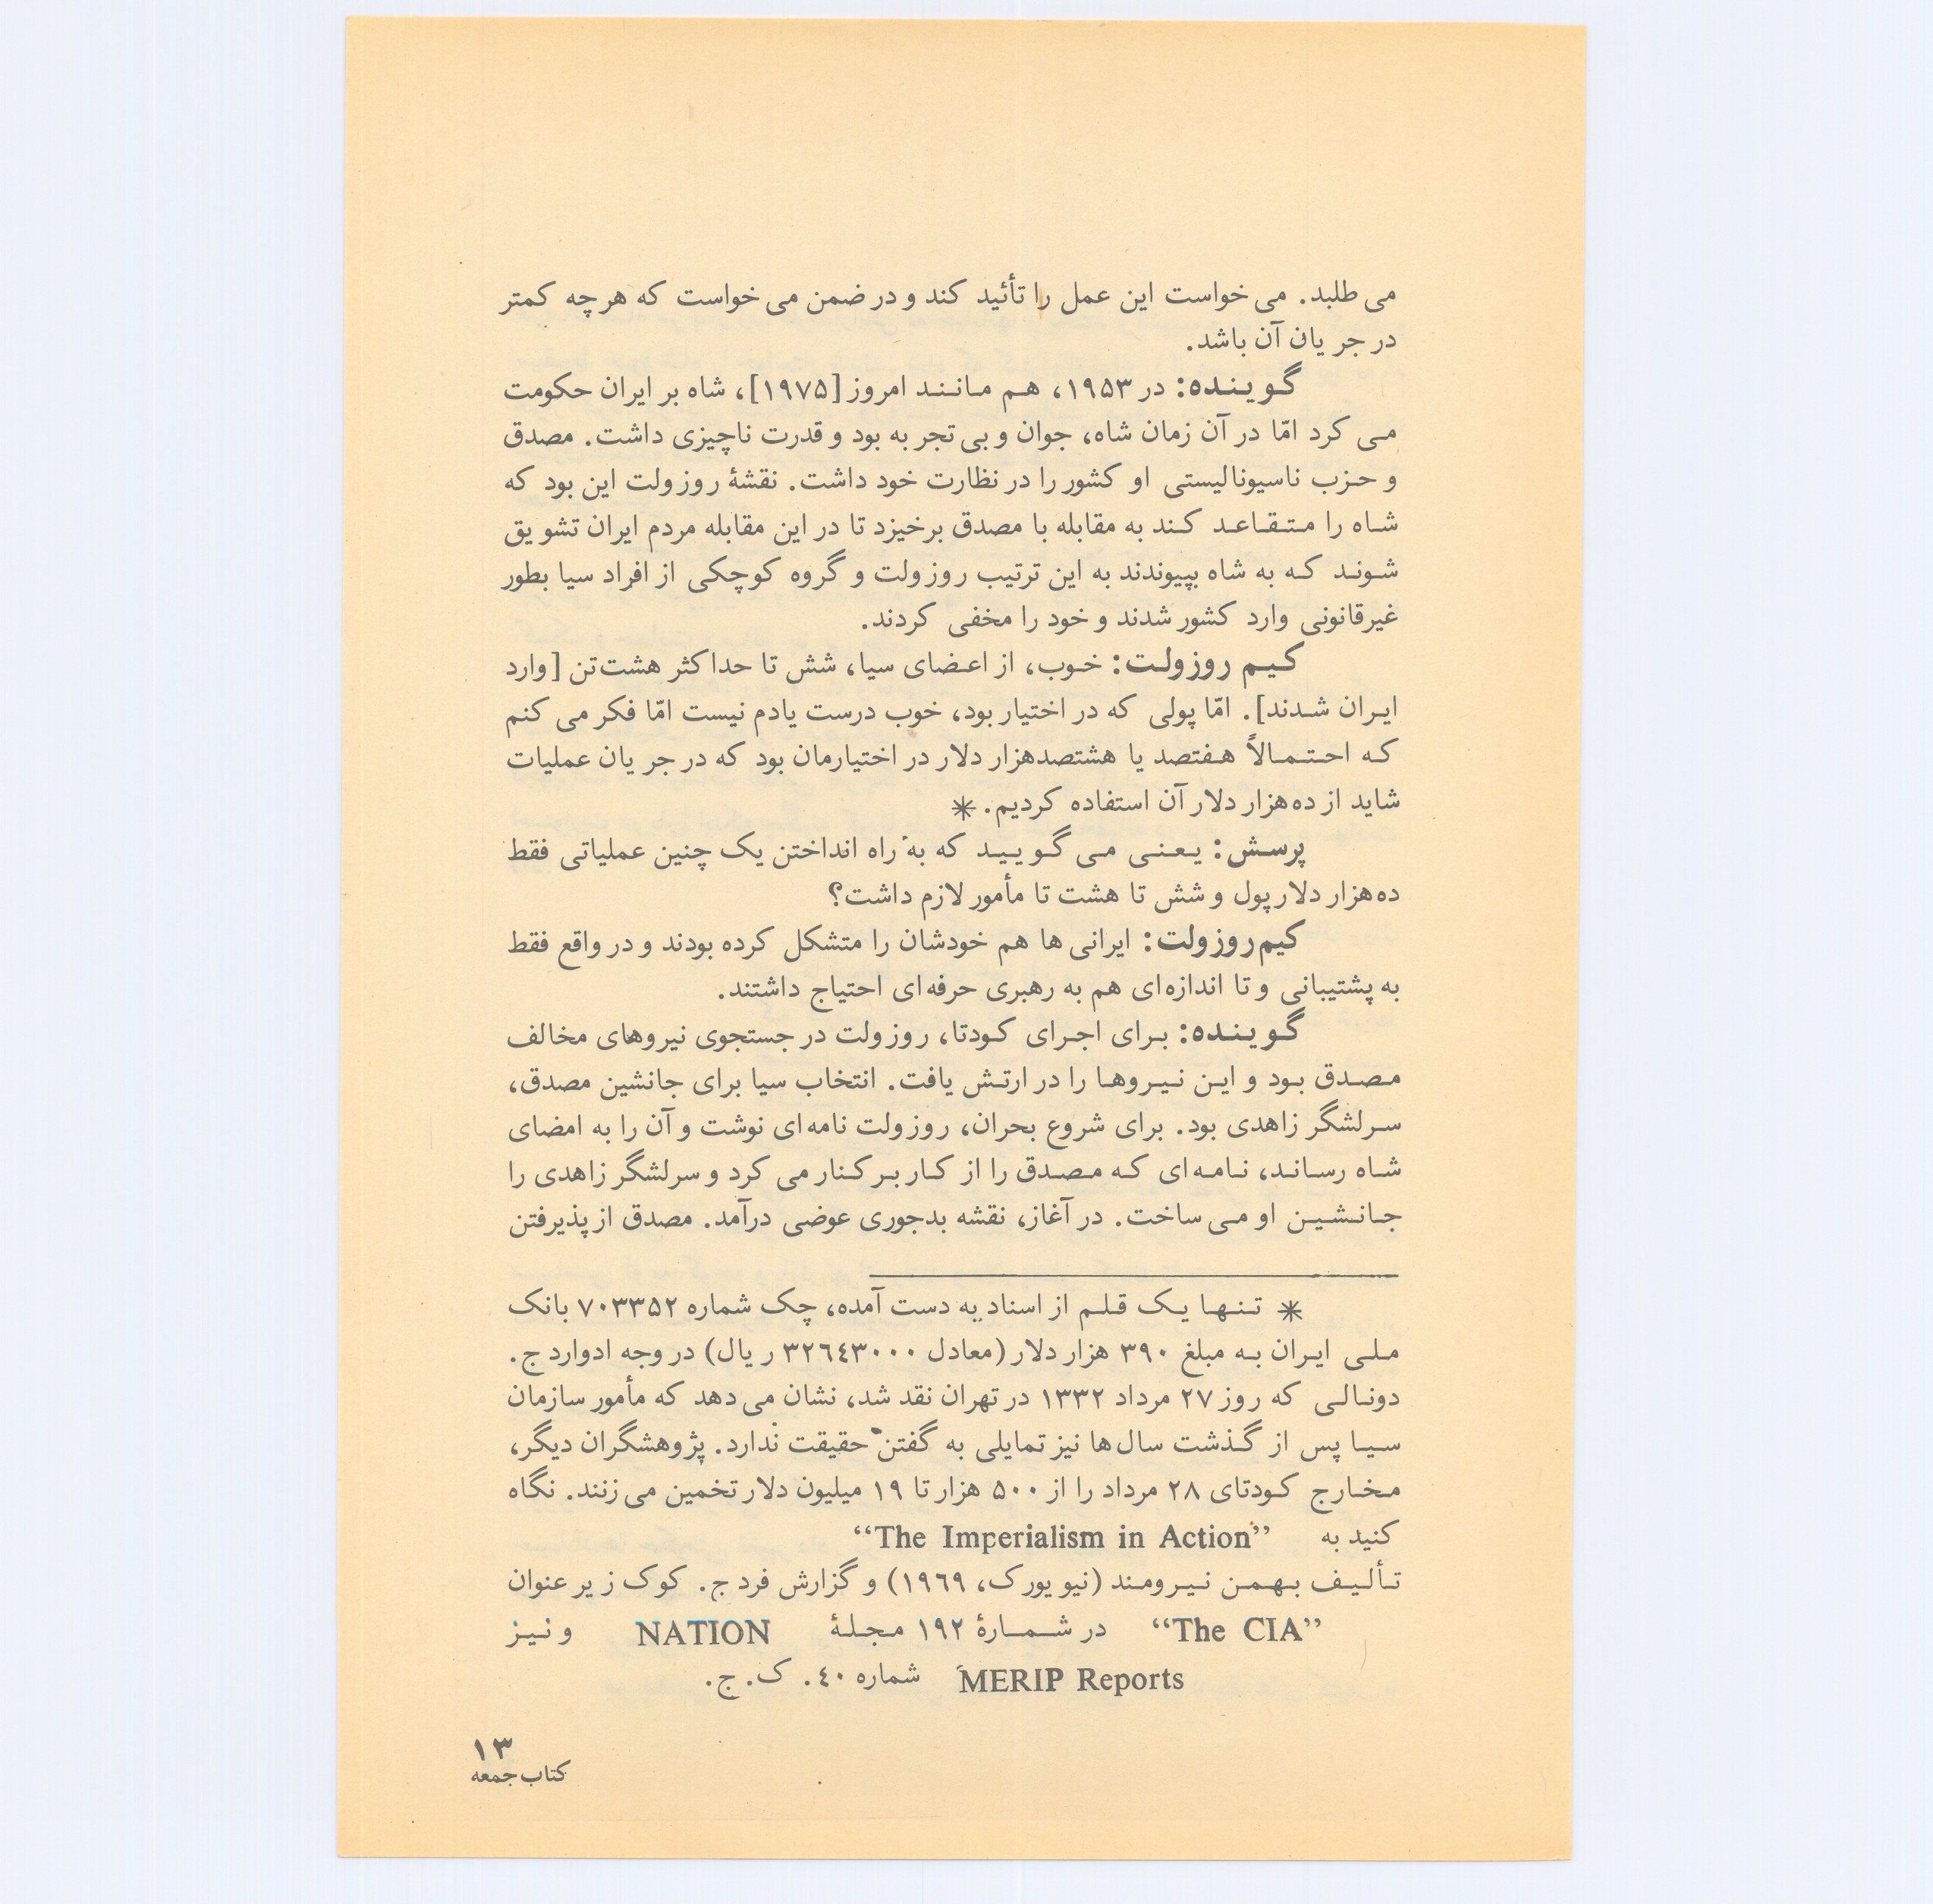 می طلبد. می خواست این عمل را تأئید کند و در ضمن می خواست که هر چه کمتر
در جریان آن باشد.
گوینده: در ۱۹۵۳، هم مانند امروز [۱۹۷۵]، شاه بر ایران حکومت
می کرد امّا در آن زمان شاه، جوان و بی تجربه بود و قدرت ناچیزی داشت. مصدق
و حزب ناسیونالیستی او کشور را در نظارت خود داشت. نقشۀ روزولت این بود که
شاه را متقاعد کند به مقابله با مصدق برخیزد تا در این مقابله مردم ایران تشویق
شوند که به شاه بپیوندند به این ترتیب روزولت و گروه کوچکی از افراد سیا بطور
غیرقانونی وارد کشور شدند و خود را مخفی کردند.
کیم روزولت: خوب، از اعضای سیا، شش تا حداکثر هشت تن [وارد
ایران شدند]. امّا پولی که در اختیار بود، خوب درست یادم نیست امّا فکر می کنم
که احتمالاً هفتصد یا هشتصدهزار دلار در اختیارمان بود که در جریان عملیات
شاید از ده هزار دلار آن استفاده کردیم. *
پرسش: یعنی می گویید که به راه انداختن یک چنین عملیاتی فقط
ده هزار دلار پول و شش تا هشت تا مأمور لازم داشت؟
کیم روزولت: ایرانی ها هم خودشان را متشکل کرده بودند و در واقع فقط
به پشتیبانی و تا اندازه ای هم به رهبری حرفه ای احتیاج داشتند.
گوینده: برای اجرای کودتا، روزولت در جستجوی نیروهای مخالف
مصدق بود و این نیروها را در ارتش یافت. انتخاب سیا برای جانشین مصدق،
سرلشگر زاهدی بود. برای شروع بحران، روزولت نامه ای نوشت و آن را به امضای
شاه رساند، نامه ای که مصدق را از کار برکنار می کرد و سرلشگر زاهدی را
جانشین او می ساخت. در آغاز، نقشه بدجوری عوضی درآمد. مصدق از پذیرفتن
* تنها یک قلم از اسناد به دست آمده، چک شماره ۷۰۳۳۵۲ بانک
ملی ایران به مبلغ ۳۹۰ هزار دلار (معادل ۳۲٦٤۳۰۰۰ ریال) در وجه ادوارد ج.
دونالی که روز ۲۷ مرداد ۱۳۳۲ در تهران نقد شد، نشان می دهد که مأمور سازمان
سیا پس از گذشت سال ها نیز تمایلی به گفتن حقیقت ندارد. پژوهشگران دیگر،
مخارج کودتای ۲۸ مرداد را از ۵۰۰ هزار تا ۱۹ میلیون دلار تخمین می زنند. نگاه
کنید به “The Imperialism in Action”
تألیف بهمن نیرومند (نیویورک، ۱۹٦۹) و گزارش فرد ج. کوک زیر عنوان
“The CIA” در شمارۀ ۱۹۲ مجلۀ NATION و نیز
MERIP Reports شماره ٤۰. ک. ج.
۱۳
کتاب جمعه